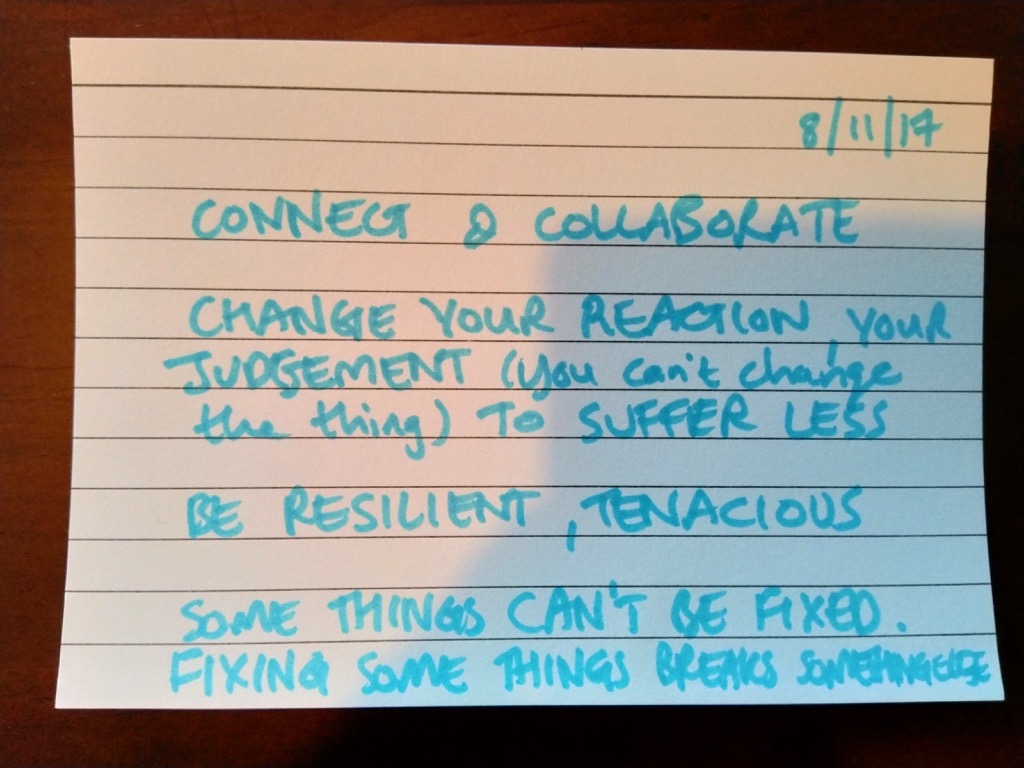 8/11/17
CONNECT & COLLABORATE
CHANGE YOUR REACTION, YOUR
JUDGEMENT (you can't change
the thing) TO SUFFER LESS
BE RESILIENT, TENACIOUS
SOME THINGS CAN'T BE FIXED.
FIXING SOME THINGS BREAKS SOMETHING ELSE